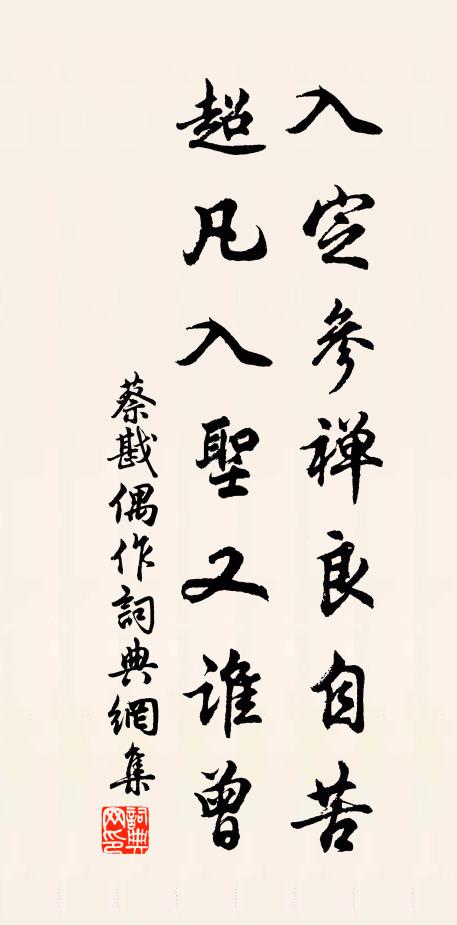 入定參禅良自苦
超凡入聖又誰曾
蔡戡偶作詞典網集
詞典網印